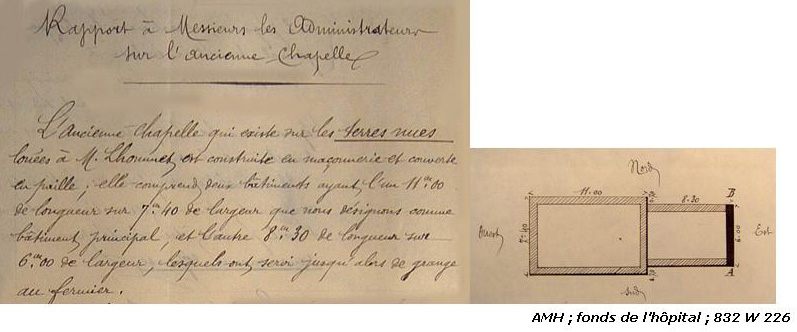 Rapport à Messieurs les Administrateurs
sur l'ancienne Chapelle
L'Ancienne chapelle qui existe sur les terres nues
louées à M. Lhommet, est construite en maçonnerie et couverte
en paille ; elle comprend deux bâtiments ayant l'un 11m.00
de longueur sur 7m.40 de largeur que nous désignons comme
bâtiment principal, et l'autre 8m.30 de longueur sur
6m.00 de largeur, lesquels ont servi jusqu'alors de grange
au fermier.
Nord
11.00
8.30
B
Ouest
7.40
6.00
Est
A
Sud
AMH ; fonds de l'hôpital ; 832 W 226